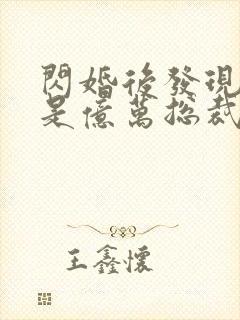 閃婚後發現
是億萬總裁
王鑫懷